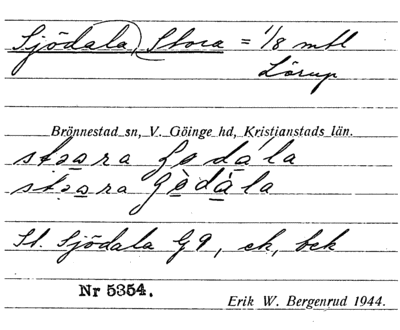 Sjödala, Stora = 1/8 mtl
Lörup
Brönnestad sn, V. Göinge hd, Kristianstads län.
St. Sjödala G 9, ek, bek
Nr 5354.
Erik W. Bergenrud 1944.